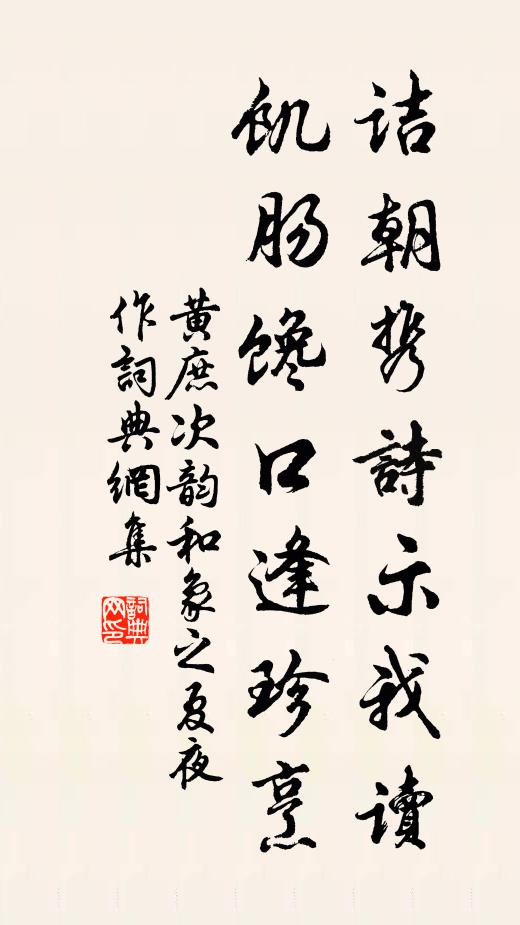 诘朝携詩示我讀
飢肠馋口逢珍烹
黄庶次韵和象之夏夜
作詞典網集
詞典网印